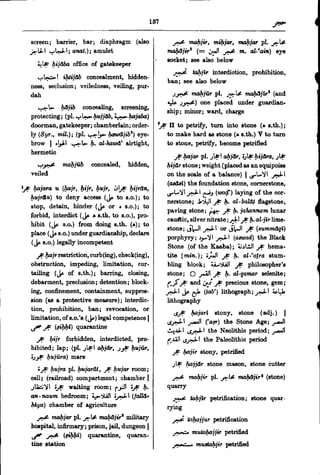 157
screen; barrier, bar; diaphragm (also
حجاب حاجز); amulet
حجابة ḥijāba office of gatekeeper
احتجاب iḥtijāb concealment, hidden-
ness, seclusion; veiledness, veiling, pur-
dah
حاجب ḥājib concealing, screening,
protecting; (pl. حجاب ḥujjāb, حجبة ḥajaba)
doorman, gatekeeper; chamberlain; order-
ly (Syr., mil.); (pl. حواجب ḥawājib²) eye-
brow
hermetic
محجوب maḥjūb concealed, hidden,
veiled
¹حجر ḥajara u (ḥajr, ḥijr, ḥujr, حجران ḥijrān,
ḥujrān) to deny access (على to s.o.); to
stop, detain, hinder
forbid, interdict
hibit
place
legally incompetent
حجر ḥajr restriction, curb(ing), check(ing),
obstruction, impeding, limitation, cur-
tailing (على of s.th.); barring, closing,
debarment, preclusion; detention; block-
ing, confinement, containment, suppres-
sion (as a protective measure); interdic-
tion, prohibition, ban; revocation, or
limitation, of s.o.'s (على) legal competence |
حجر صحى (ṣiḥḥī) quarantine
حجر ḥijr forbidden, interdicted, pro-
hibited; lap;
ḥujūra) mare
حجرة ḥujra pl. ḥujarāt, حجر ḥujar room;
cell; (railroad) compartment; chamber |
حجرة الانتظار waiting room; حجرة النوم ḥ.
an-naum bedroom; حجرة الفلاحة (fallā-
ḥīya) chamber of agriculture
محجر maḥjar pl. محاجر maḥājir² military
hospital, infirmary; prison, jail, dungeon |
محجر صحى (ṣiḥḥī) quarantine, quaran-
tine station
محجر maḥjir, miḥjar, maḥjar pl. محاجر
maḥājir² (= محجر العين m. al-'ain) eye
socket; see also below
تحجير taḥjīr interdiction, prohibition,
ban; see also below
محجور maḥjūr pl. محاجير maḥājīr² (and
محجور عليه) one placed under guardian-
ship; minor; ward, charge
²حجر II to petrify, turn into stone (ه s.th.);
to make hard as stone (ه s.th.) V to turn
to stone, petrify, become petrified
حجر ḥajar pl. احجار aḥjār, حجارة ḥijāra, حجار
ḥijār stone; weight (placed as an equipoise
on the scale of a balance) | حجر اساسى
(asāsī) the foundation stone, cornerstone,
laying of the cor-
nerstone; حجر البلاط ḥ. al-balāṭ flagstone,
paving stone; حجر جهنم ḥ. jahannam lunar
caustic, silver nitrate; حجر الجير ḥ. al-jīr lime-
stone; حجر سماقى (summāqī)
porphyry; الحجر الاسود (aswad) the Black
Stone (of the Kaaba); hema-
tite (min.); حجر العثرة ḥ. al-'aṯra stum-
bling block; حجر الفلاسفة philosopher's
stone; حجر القمر ḥ. al-qamar selenite;
حجر كريم and precious stone, gem;
طبع على الحجر (ṭab') lithograph; طباعة الحجر
lithography
حجرى ḥajarī stony, stone (adj.) |
العصر الحجرى ('aṣr) the Stone Age; العصر
الحجرى الحديث the Neolithic period; العصر
الحجرى القديم the Paleolithic period
حجر ḥajir stony, petrified
حجار ḥajjār stone mason, stone cutter
محجر maḥjar pl. محاجر maḥājir² (stone)
quarry
تحجير taḥjīr petrification; stone quar-
rying
تحجر taḥajjur petrification
متحجر mutaḥajjir petrified
مستحجر mustaḥjir petrified